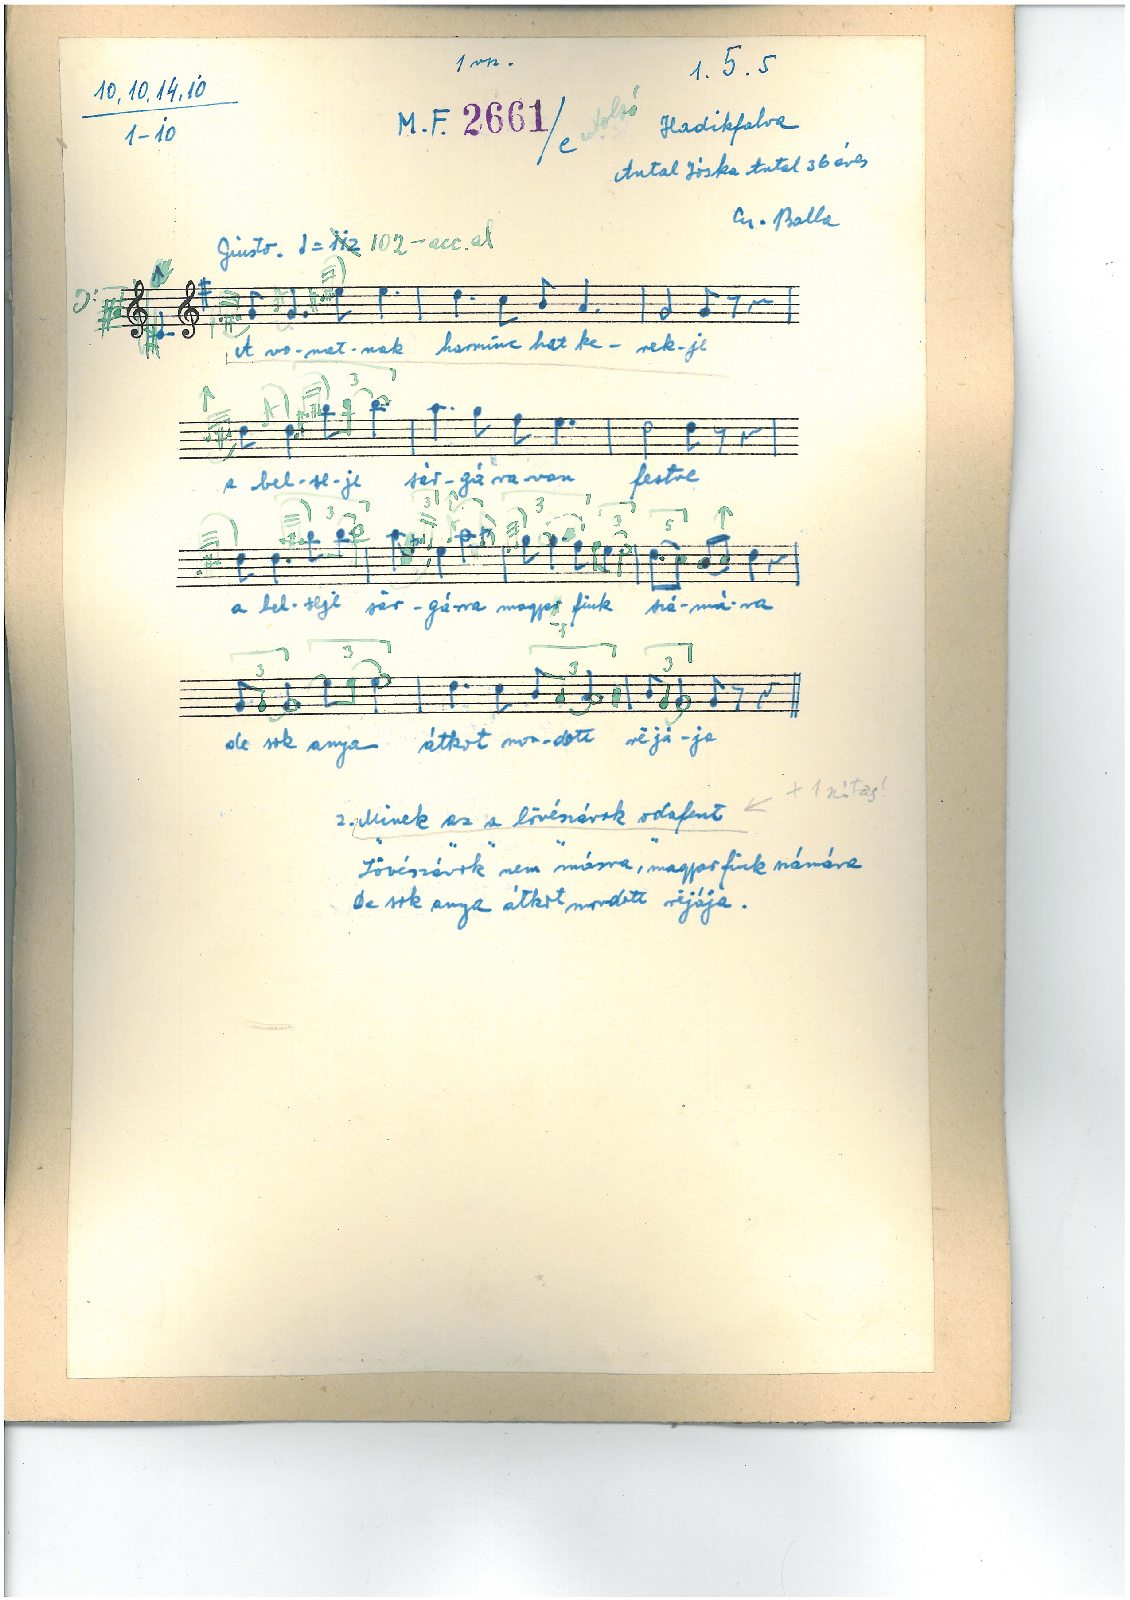 1 vsz. 1. 5. 5
10, 10, 14, 10
1-10
M.F. 2661/e utolsó
Hadikfalva
Antal Jóska Antal 36 éves
Gy. Balla
Giusto. 102 - acc. al
A vo-nat-nak harminc hat ke-rek-je
a bel-se-je sár-gá-ra van festve
a bel-seje sár-gára magyar fiuk szá-má-ra
de sok anya átkot mon-dott réjá-ja
2. Minek az a lövészárok odafent
Lövészárok nem másra, magyar fiuk számára
de sok anya átkot mondott réjája.